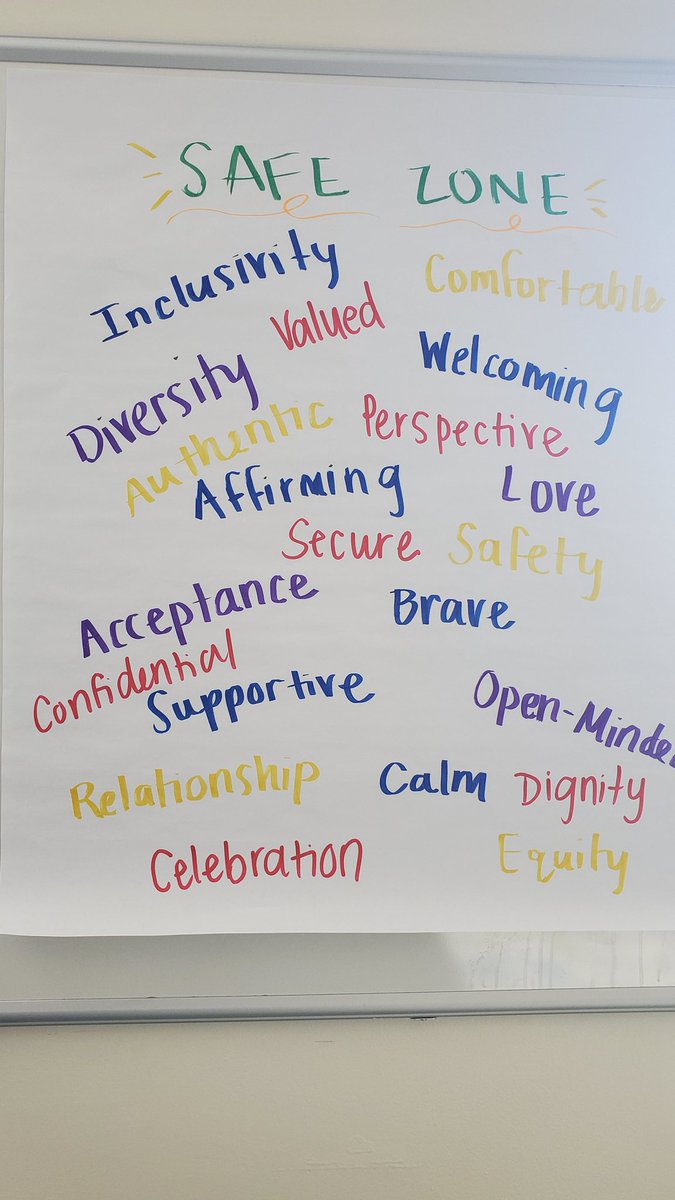 SAFE ZONE
Inclusivity
Comfortable
Valued
Welcoming
Diversity
Authentic
Perspective
Affirming
Love
Secure
Safety
Acceptance
Brave
Confidential
Supportive
Open-Minde
Relationship
Calm
Dignity
Celebration
Equity